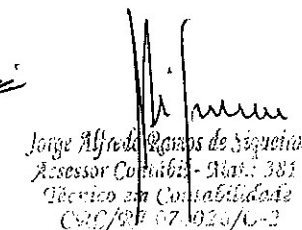 Jorge Alfredo Ramos de Siqueira
Assessor Contábil - Mat.: 381
Técnico em Contabilidade